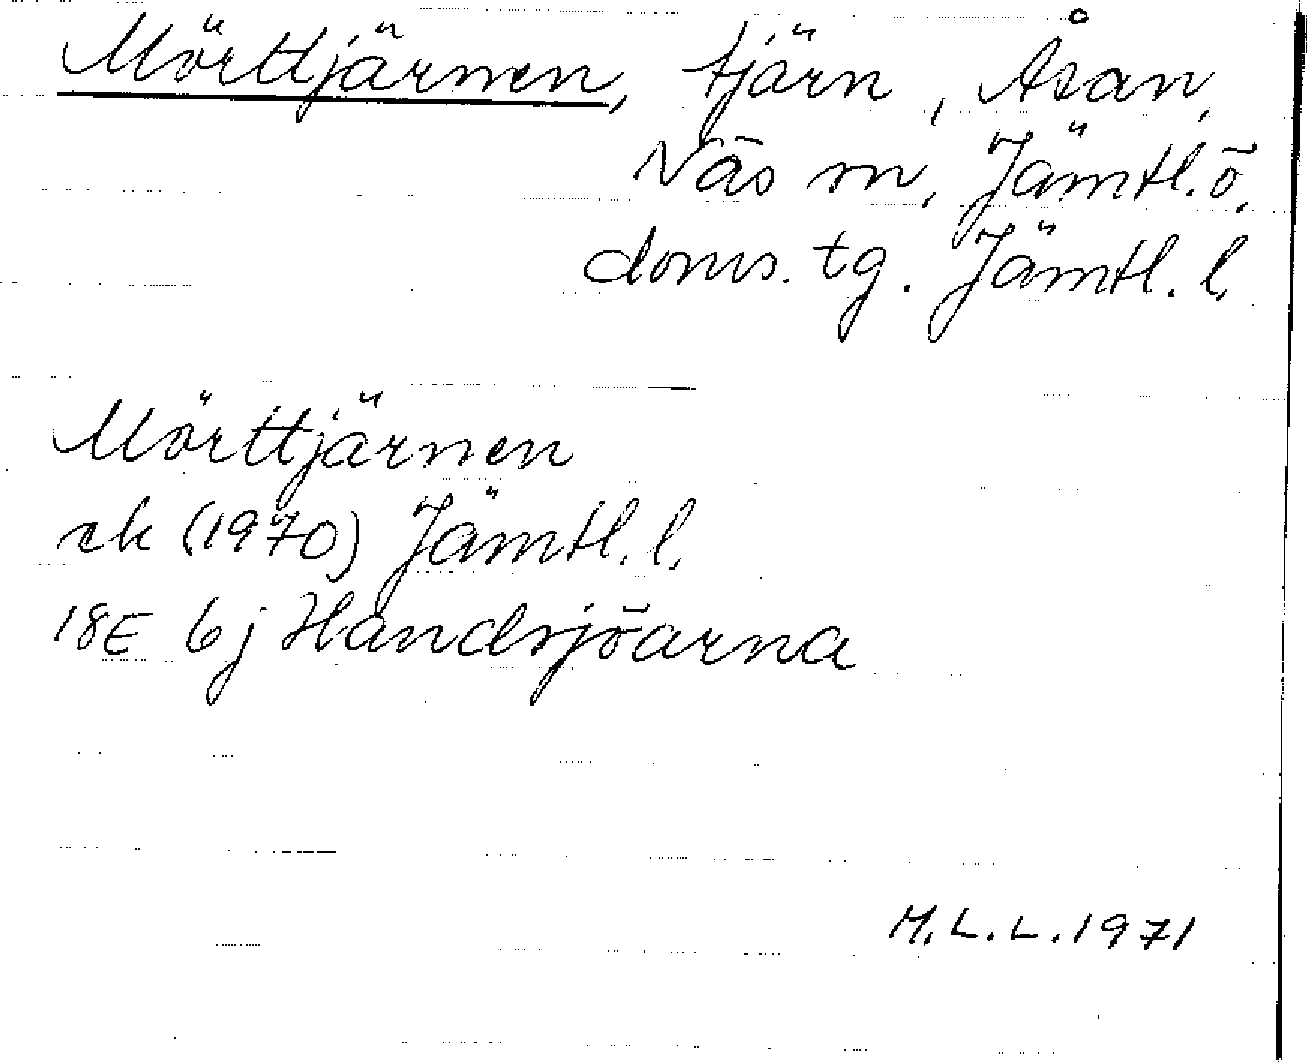 Mörttjärnen, tjärn, Åsan,
Näs sn, Jämtl. ö.
doms. tg. Jämtl. l.
Mörttjärnen
rk (1970) Jämtl. l.
18E 6j Handsjöarna
M.L.L. 1971